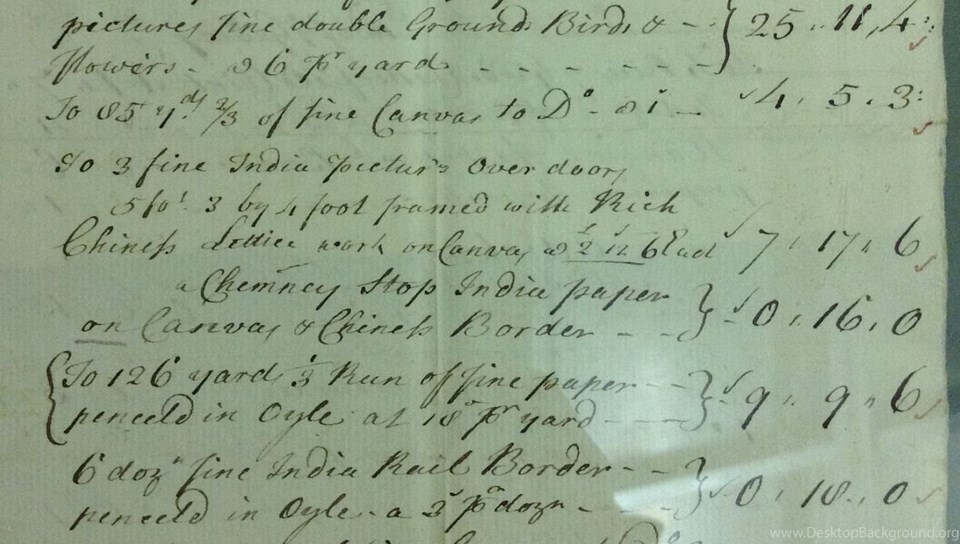 pictures fine double Grounds Birds & - - } 25 " 11 , 4 :
flowers - a 6 pr yard - - - - - -
To 85 yds 2/3 of fine Canvas to Do - a 1s - 4 , 5 , 3 :
To 3 fine India picturs over doors
5 fot 3 by 4 foot framed with Rich
Chiness Lattice work on Canvas a 2 12 6 Each 7 , 17 , 6
a Chemney Stop India paper
on Canvas & Chiness Border - - } 0 , 16 , 0
{ To 126 yards 1/3 Run of fine paper - - } 9 , 9 " 6
penceld in Oyle at 18 pr yard - - -
6 dozn fine India Rail Border - - } 0 , 18 , 0
penceld in Oyle - a 3s pr dozn -
www.DesktopBackground.org